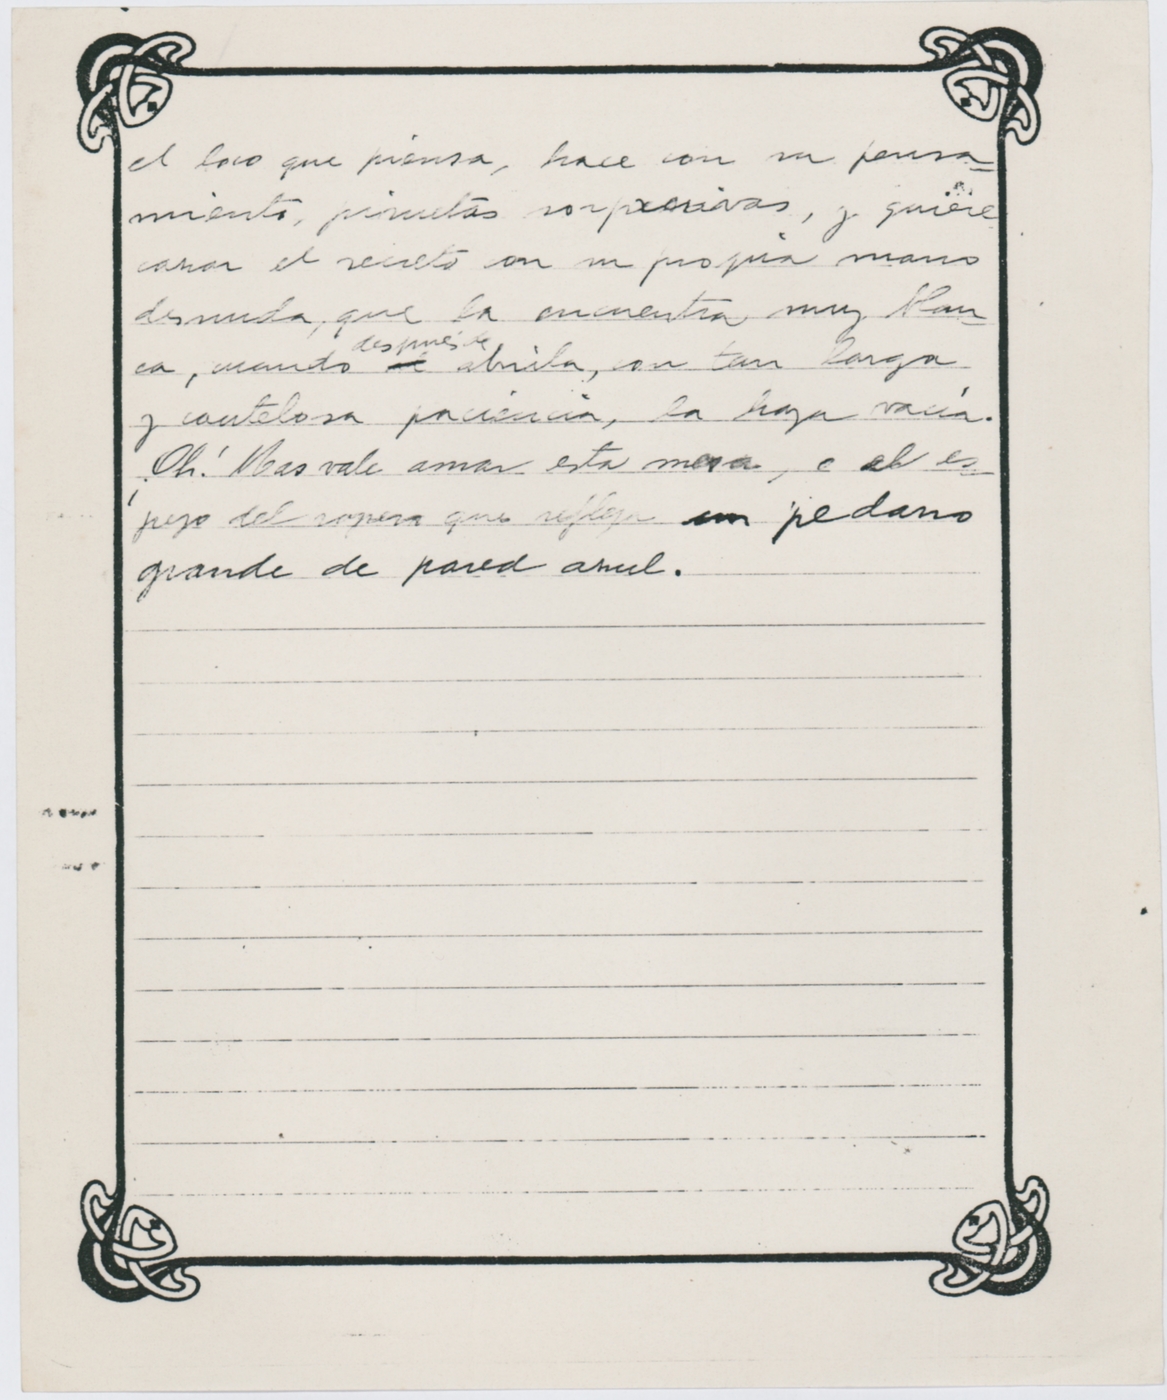 el loco que piensa, hace con su pensa-
miento, piruetas sorpresivas, y quiere
cazar el secreto con su propia mano
desnuda, que la encuentra muy blan-
después de
ca, cuando abrila, con tan larga
y cautelosa paciencia, la haya vacía.
¡Oh! Mas vale amar esta mesa, o al es-
pejo del ropero que refleja un pedazo
grande de pared azul.